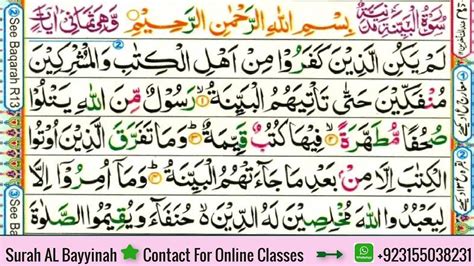 سُوْرَةُ الْبَيِّنَةِ
بِسْمِ اللّٰهِ الرَّحْمٰنِ الرَّحِيْمِ
لَمْ يَكُنِ الَّذِيْنَ كَفَرُوْا مِنْ اَهْلِ الْكِتٰبِ وَالْمُشْرِكِيْنَ
مُنْفَكِّيْنَ حَتّٰى تَاْتِيَهُمُ الْبَيِّنَةُ ① رَسُوْلٌ مِّنَ اللّٰهِ يَتْلُوْا
صُحُفًا مُّطَهَّرَةً ② فِيْهَا كُتُبٌ قَيِّمَةٌ ③ وَمَا تَفَرَّقَ الَّذِيْنَ اُوْتُوا
الْكِتٰبَ اِلَّا مِنْۢ بَعْدِ مَا جَآءَتْهُمُ الْبَيِّنَةُ ④ وَمَآ اُمِرُوْٓا اِلَّا
لِيَعْبُدُوا اللّٰهَ مُخْلِصِيْنَ لَهُ الدِّيْنَ ۙ حُنَفَآءَ وَيُقِيْمُوا الصَّلٰوةَ
② See Baqarah R13
③ See B
Surah AL Bayyinah Contact For Online Classes +923155038231